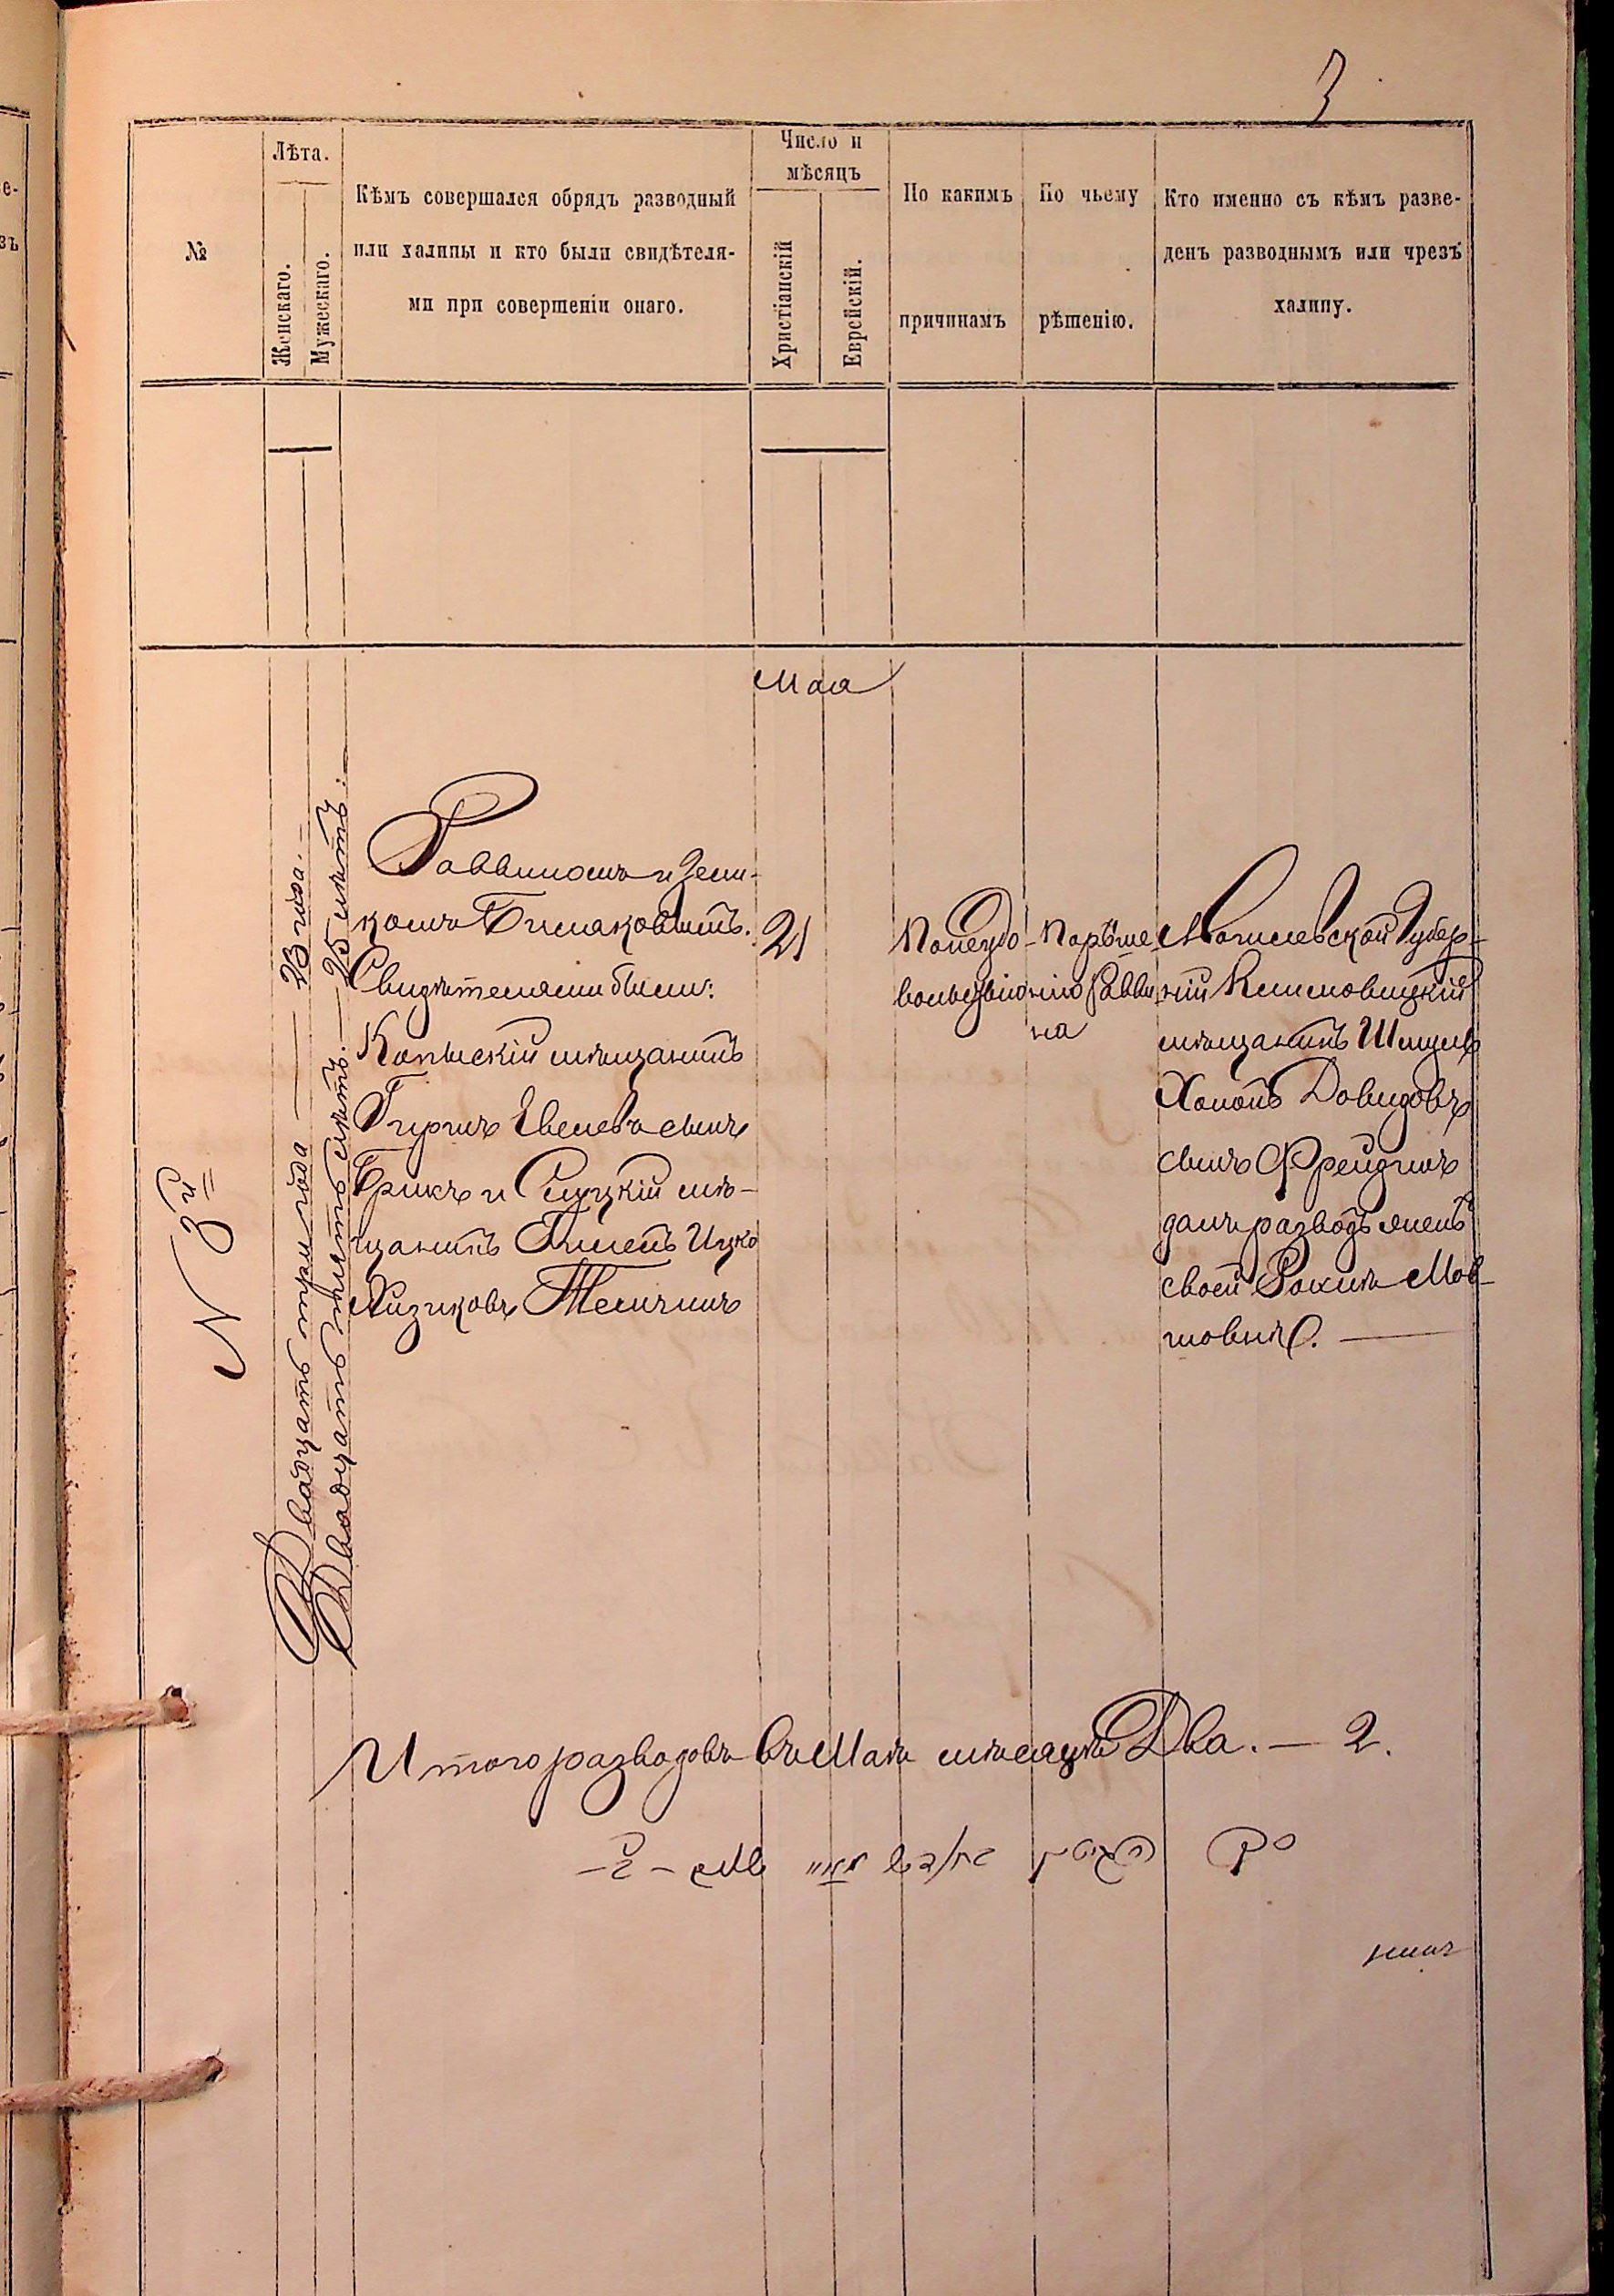 3
№
Лѣта.
Женскаго.
Мужескаго.
Кѣмъ совершался обрядъ разводный
или халицы и кто были свидѣтеля-
ми при совершеніи онаго.
Число и
мѣсяцъ
Христіанскій
Еврейскій.
По какимъ
причинамъ
По чьему
рѣшенію.
Кто именно съ къмъ разве-
денъ разводнымъ или чрезъ
халицу.
Мая
N 3й
Двадцать три года — 23 года. —
Двадцать пять лѣтъ. — 25 лѣтъ.
Раввиномъ
Свидѣтелями были:
Копыскій мѣщанинъ
Гиршъ Евелевъ сынъ
Брикъ и Слуцкій мѣ-
щанинъ Гилель Ицко
21
По неудо-
вольствію
По рѣше
нію Равви
на
Могилевской Губер-
ніи Климовицкій
мѣщанинъ Шмуель
Хононъ Довидовъ
сынъ Фрейдинъ
далъ разводъ женѣ
своей Рохилѣ Мов-
шовнѣ. —
Итого разводовъ въ Маѣ мѣсяцѣ Два. — 2.